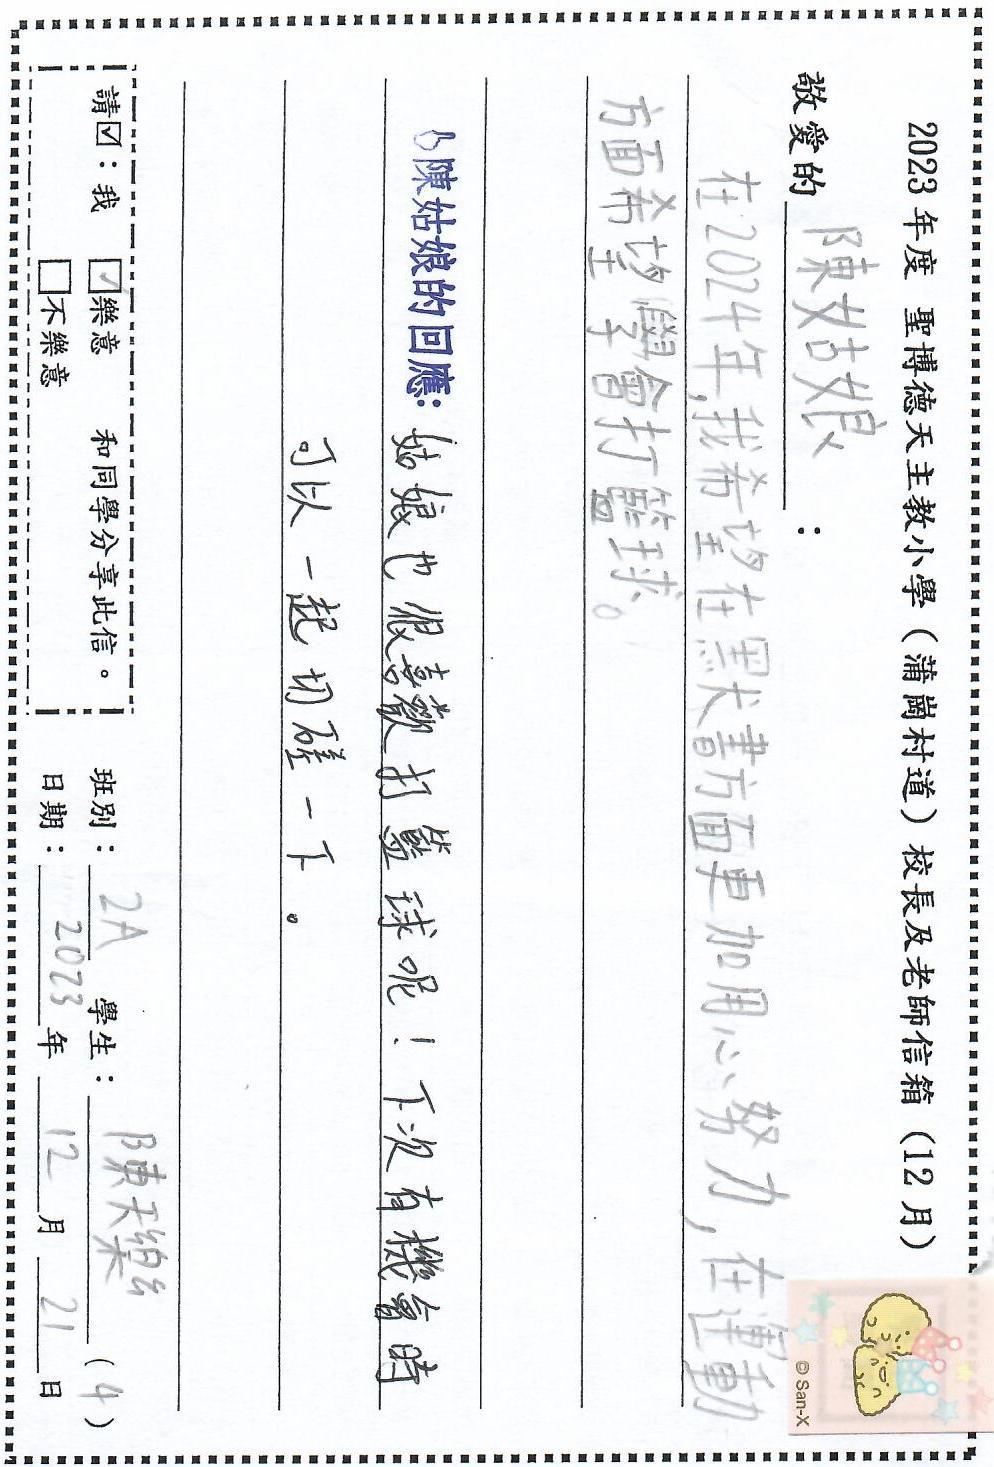 2023 年度 聖博德天主教小學（蒲崗村道）校長及老師信箱（12 月）
敬愛的 陳姑娘 ：
在2024年,我希望在默書方面更加用心、努力,在運動
方面希望學會打籃球。
陳姑娘的回應:
姑娘也很喜歡打籃球呢！下次有機會時
可以一起切磋一下。
請☑：我 ☑樂意 和同學分享此信。
☐不樂意
班別：2A 學生：陳天樂 (4)
日期：2023 年 12 月 21 日
© San-X